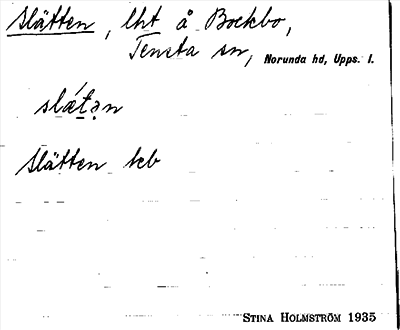 Slätten, lht å Bockbo,
Tensta sn, Norunda hd, Upps. l.
slǽt̠ə̣n
Slätten tcb
STINA HOLMSTRÖM 1935